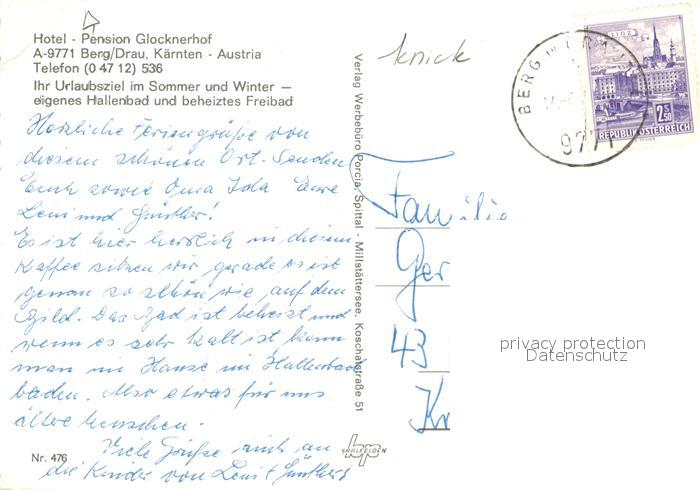 Hotel - Pension Glocknerhof
A-9771 Berg/Drau, Kärnten - Austria
Telefon (0 47 12) 536
Ihr Urlaubsziel im Sommer und Winter —
eigenes Hallenbad und beheiztes Freibad
Herzliche Feriengrüße von
diesem schönen Ort. Senden
Euch sowie Oma Ida Eure
Leni und Günther!
Es ist hier herrlich in diesem
Kaffee sitzen wir gerade es ist
genau so schön wie auf dem
Bild. Das Bad ist beheizt und
wenn es sehr kalt ist kann
man im Hause im Hallenbad
baden. Also etwas für uns
ältere Menschen.
Viele Grüße auch an
die Kinder von Leni + Günther
Nr. 476
Verlag Werbebüro Porcia, Spittal - Millstättersee, Koschatstraße 51
SAALFELDEN
knick
BERG
9771
LINZ
2S50
REPUBLIK ÖSTERREICH
Familie
Ger
43
Kr
privacy protection
Datenschutz